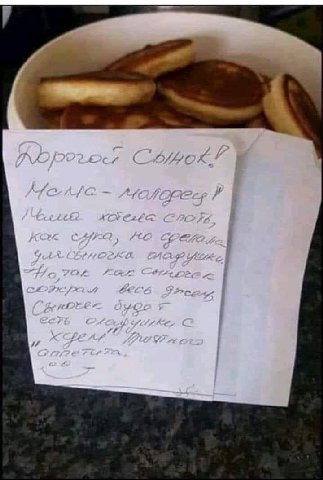 Дорогой сынок!
Мама - молодец!
Мама хотела спать,
как сука, но сделала
для сыночка оладушки.
Но, так как сыночек
сожрал весь джем,
Сыночек будет
есть оладушки с
"хуем" Приятного
аппетита.